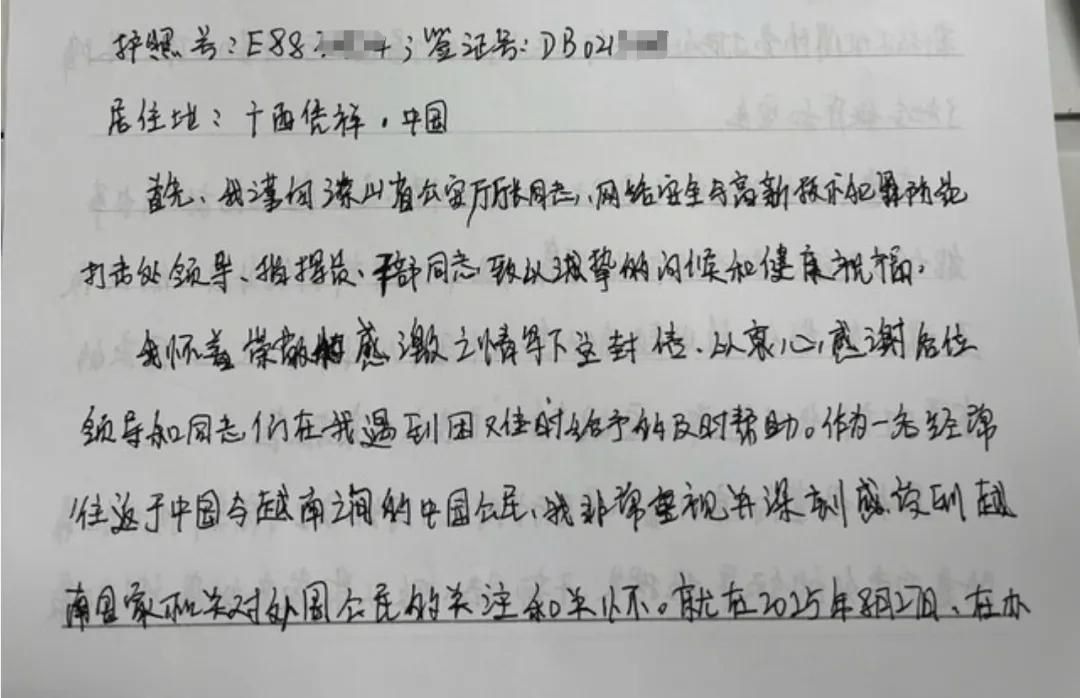 护照号：E88 ；签证号：DB021
居住地：广西凭祥，中国
首先、我谨向谅山省公安厅厅长同志、网络安全与高新技术犯罪防范
打击处领导、指挥员、干部同志致以诚挚的问候和健康祝福，
我怀着崇敬感激之情写下这封信、以衷心感谢各位
领导和同志们在我遇到困难时给予的及时帮助。作为一名经常
往返于中国与越南之间的中国公民、我非常重视并深刻感受到越
南国家机关对外国公民的关注和关怀。就在2025年8月27日、在办